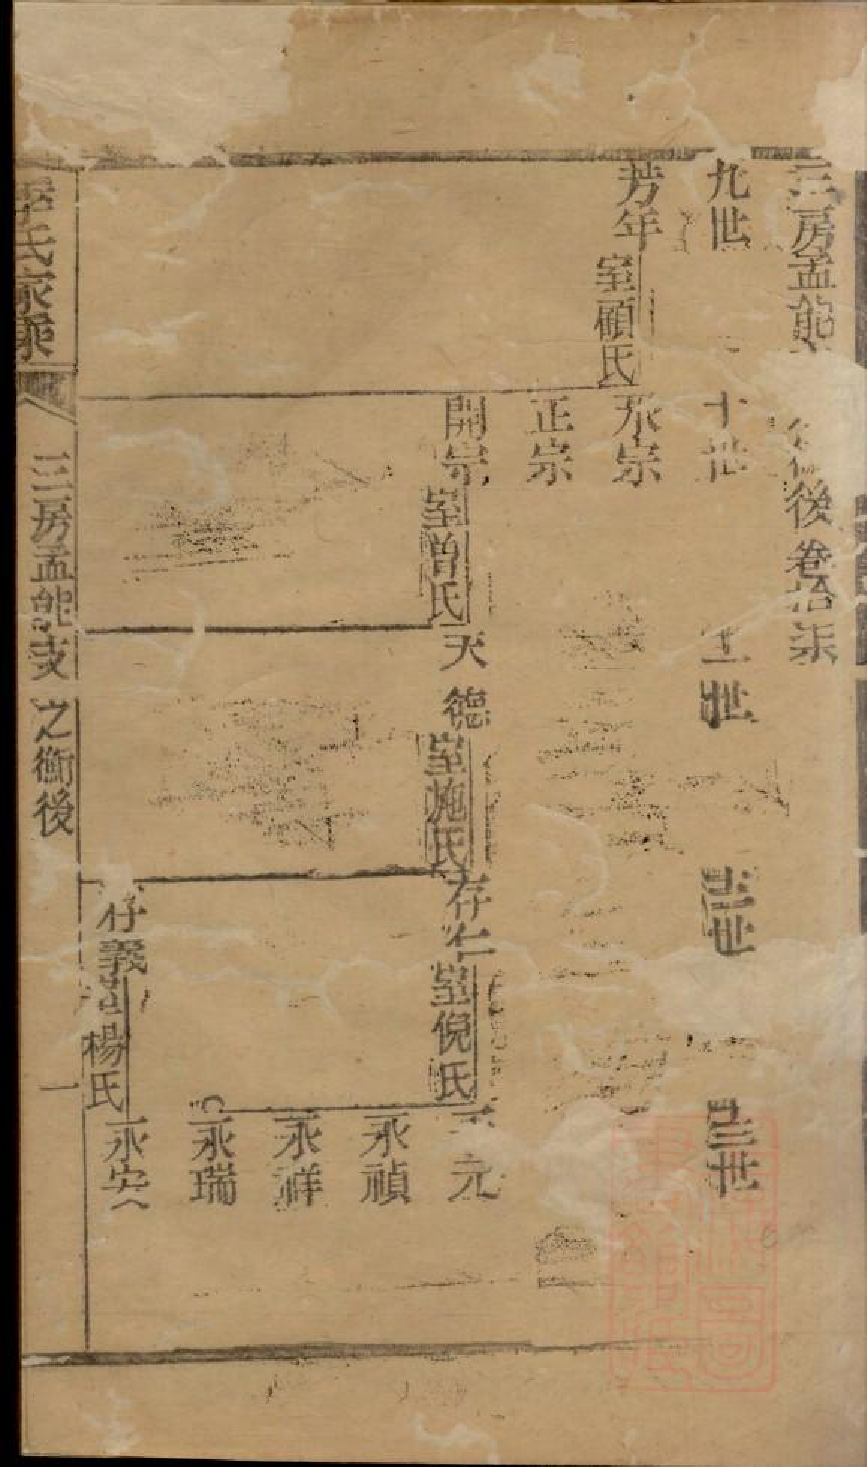 三房孟能 後卷拾柒
九世 十世 十一世 十二世 十三世
芳年 室顧氏
永宗
正宗
開宗 室曾氏 天德 室施氏 存仁 室倪氏 元
永禎
永祥
永瑞
存義 室楊氏 永安
氏家乘 三房孟能支 之衡後 一